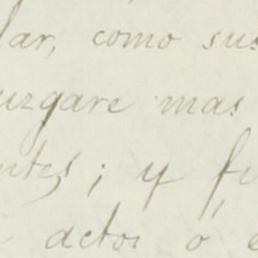 lar, como sus
uzgare mas
ntes; y fu
actos ó e